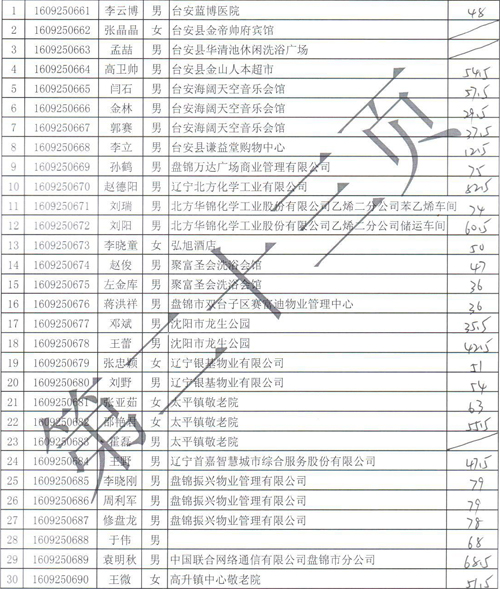 1 1609250661 李云博 男 台安蓝博医院 48
2 1609250662 张晶晶 女 台安县金帝帅府宾馆
3 1609250663 孟喆 男 台安县华清池休闲洗浴广场
4 1609250664 高卫帅 男 台安县金山人本超市 54.5
5 1609250665 闫石 男 台安海阔天空音乐会馆 57.5
6 1609250666 金林 男 台安海阔天空音乐会馆 29.5
7 1609250667 郭赛 男 台安海阔天空音乐会馆 27.5
8 1609250668 李立 男 台安县谦益堂购物中心 12.5
9 1609250669 孙鹤 男 盘锦万达广场商业管理有限公司 75
10 1609250670 赵德阳 男 辽宁北方化学工业有限公司 82.5
11 1609250671 刘瑞 男 北方华锦化学工业股份有限公司乙烯二分公司苯乙烯车间 74
12 1609250672 刘阳 男 北方华锦化学工业股份有限公司乙烯二分公司储运车间 60.5
13 1609250673 李晓童 女 弘旭酒店 50
14 1609250674 赵俊 男 聚富圣会洗浴会馆 47
15 1609250675 左金库 男 聚富圣会洗浴会馆 36
16 1609250676 蒋洪祥 男 盘锦市双台子区赛富迪物业管理中心 36
17 1609250677 邓斌 男 沈阳市龙生公园 35.5
18 1609250678 王蕾 男 沈阳市龙生公园 42.5
19 1609250679 张忠颖 女 辽宁银基物业有限公司 51
20 1609250680 刘野 男 辽宁银基物业有限公司 54
21 1609250681 张亚茹 女 太平镇敬老院 63
22 1609250682 邵艳君 女 太平镇敬老院 55.5
23 1609250683 霍磊 男 太平镇敬老院
24 1609250684 王野 男 辽宁首嘉智慧城市综合服务股份有限公司 47.5
25 1609250685 李晓刚 男 盘锦振兴物业管理有限公司 79
26 1609250686 周利军 男 盘锦振兴物业管理有限公司 79
27 1609250687 修盘龙 男 盘锦振兴物业管理有限公司 78
28 1609250688 于伟 男 68
29 1609250689 袁明秋 男 中国联合网络通信有限公司盘锦市分公司 68.5
30 1609250690 王微 女 高升镇中心敬老院 51.5
第二十三页